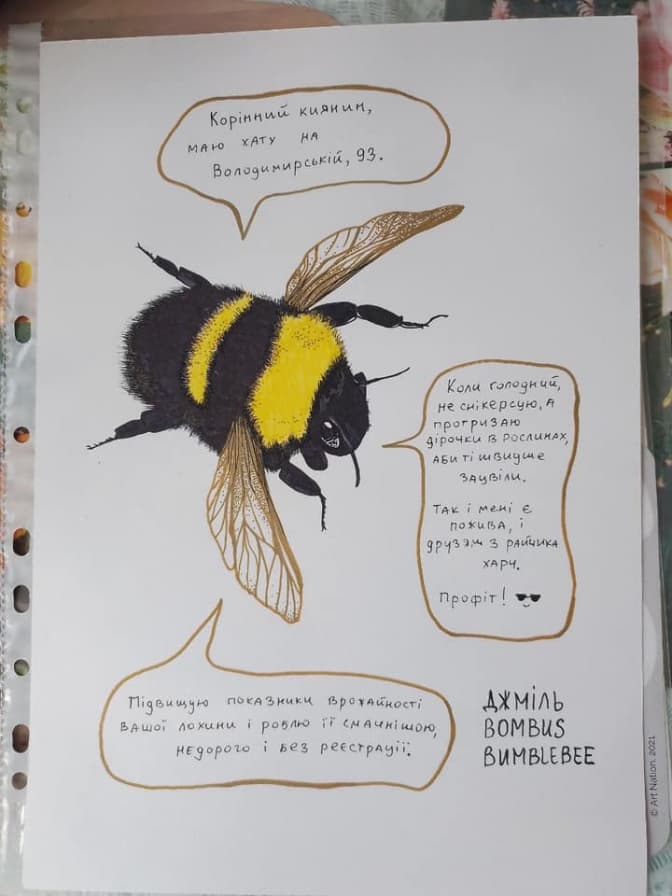 Корінний киянин,
маю хату на
Володимирській, 93.
Коли голодний,
не снікерсую, а
прогризаю
дірочки в рослинах,
аби ті швидше
зацвіли.
Так і мені є
пожива, і
друзям з райчика
харч.
Профіт!
Підвищую показники врожайності
вашої лохини і роблю її смачнішою,
недорого і без реєстрації.
ДЖМІЛЬ
BOMBUS
BUMBLEBEE
© Art Nation, 2021